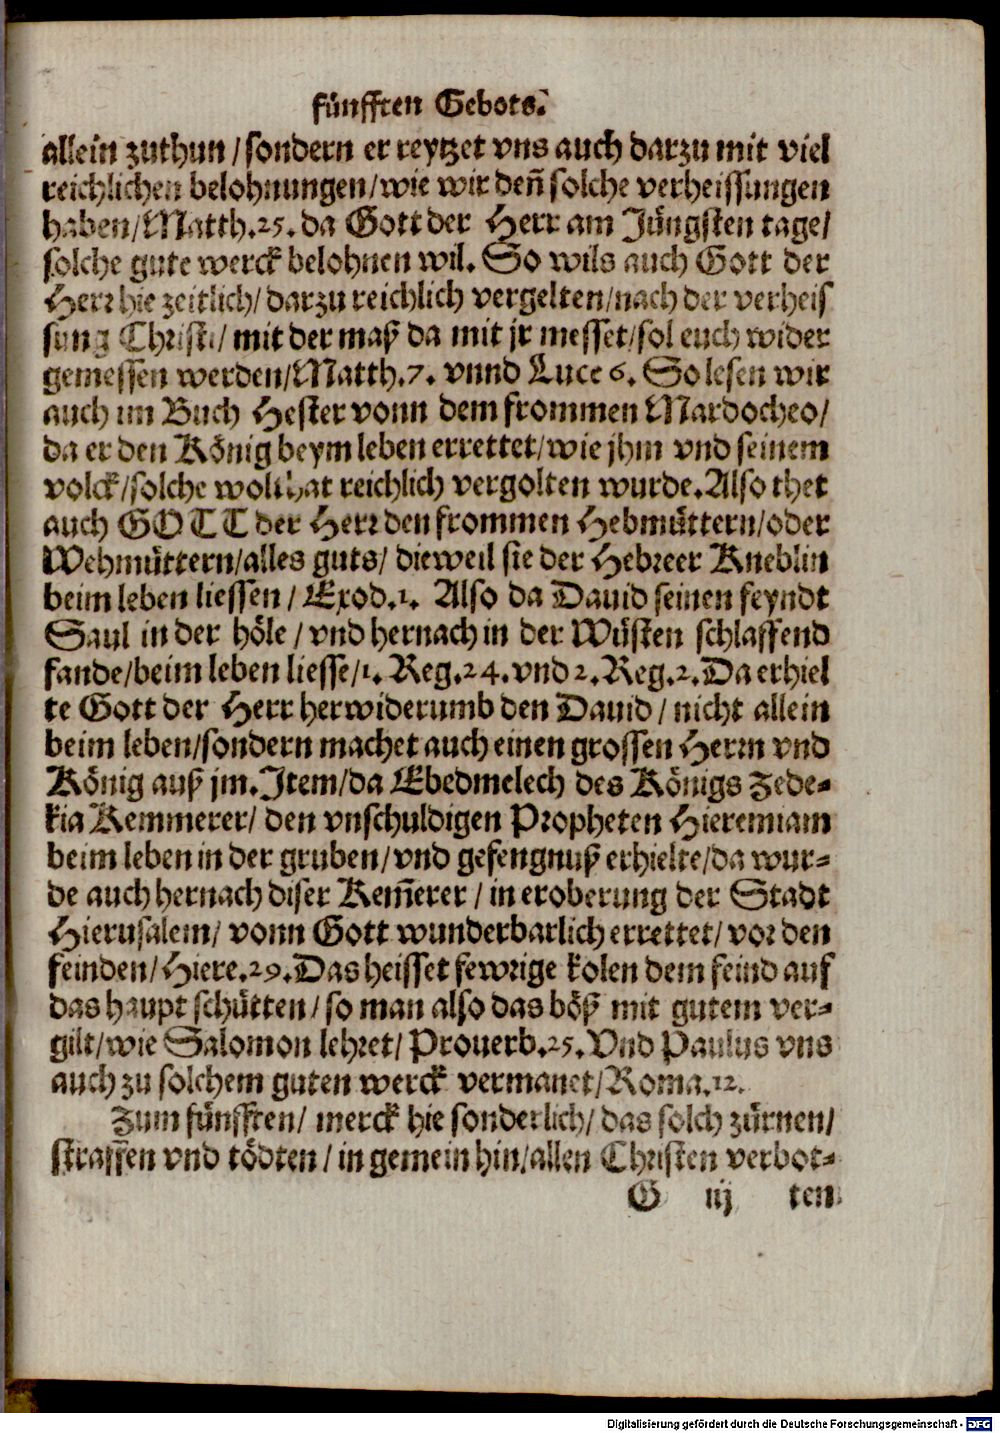 fünfften Gebots.
allein zuthun / sondern er reytzet vns auch darzu mit viel
reichlichen belohnungen / wie wir deñ solche verheissungen
haben / Matth. 25. da Gott der Herr am Jüngsten tage /
solche gute werck belohnen wil. So wils auch Gott der
Herr hie zeitlich / darzu reichlich vergelten / nach der verheis
sung Christi / mit der maß da mit jr messet / sol euch wider
gemessen werden / Matth. 7. vnnd Luce 6. So lesen wir
auch im Buch Hester vonn dem frommen Mardocheo /
da er den König beym leben errettet / wie jhm vnd seinem
volck / solche wolthat reichlich vergolten wurde. Also thet
auch GOTT der Herr den frommen Hebmüttern / oder
Wehmüttern / alles guts / dieweil sie der Hebreer Kneblin
beim leben liessen / Exod. 1. Also da Dauid seinen feyndt
Saul in der höle / vnd hernach in der Wüsten schlaffend
fande / beim leben liesse / 1. Reg. 24. vnd 2. Reg. 2. Da erhiel
te Gott der Herr herwiderumb den Dauid / nicht allein
beim leben / sondern machet auch einen grossen Herrn vnd
König auß jm. Item / da Ebedmelech des Königs Zede-
kia Kemmerer / den vnschuldigen Propheten Hieremiam
beim leben in der gruben / vnd gefengnuß erhielte / da wur-
de auch hernach diser Kem̃erer / in eroberung der Stadt
Hierusalem / vonn Gott wunderbarlich errettet / vor den
feinden / Hiere. 29. Das heisset fewrige kolen dem feind auf
das haupt schütten / so man also das böß mit gutem ver-
gilt / wie Salomon lehret / Prouerb. 25. Vnd Paulus vns
auch zu solchem guten werck vermanet / Roma. 12.
Zum fünfften / merck hie sonderlich / das solch zürnen /
straffen vnd tödten / in gemein hin / allen Christen verbot-
G iij ten
Digitalisierung gefördert durch die Deutsche Forschungsgemeinschaft - DFG